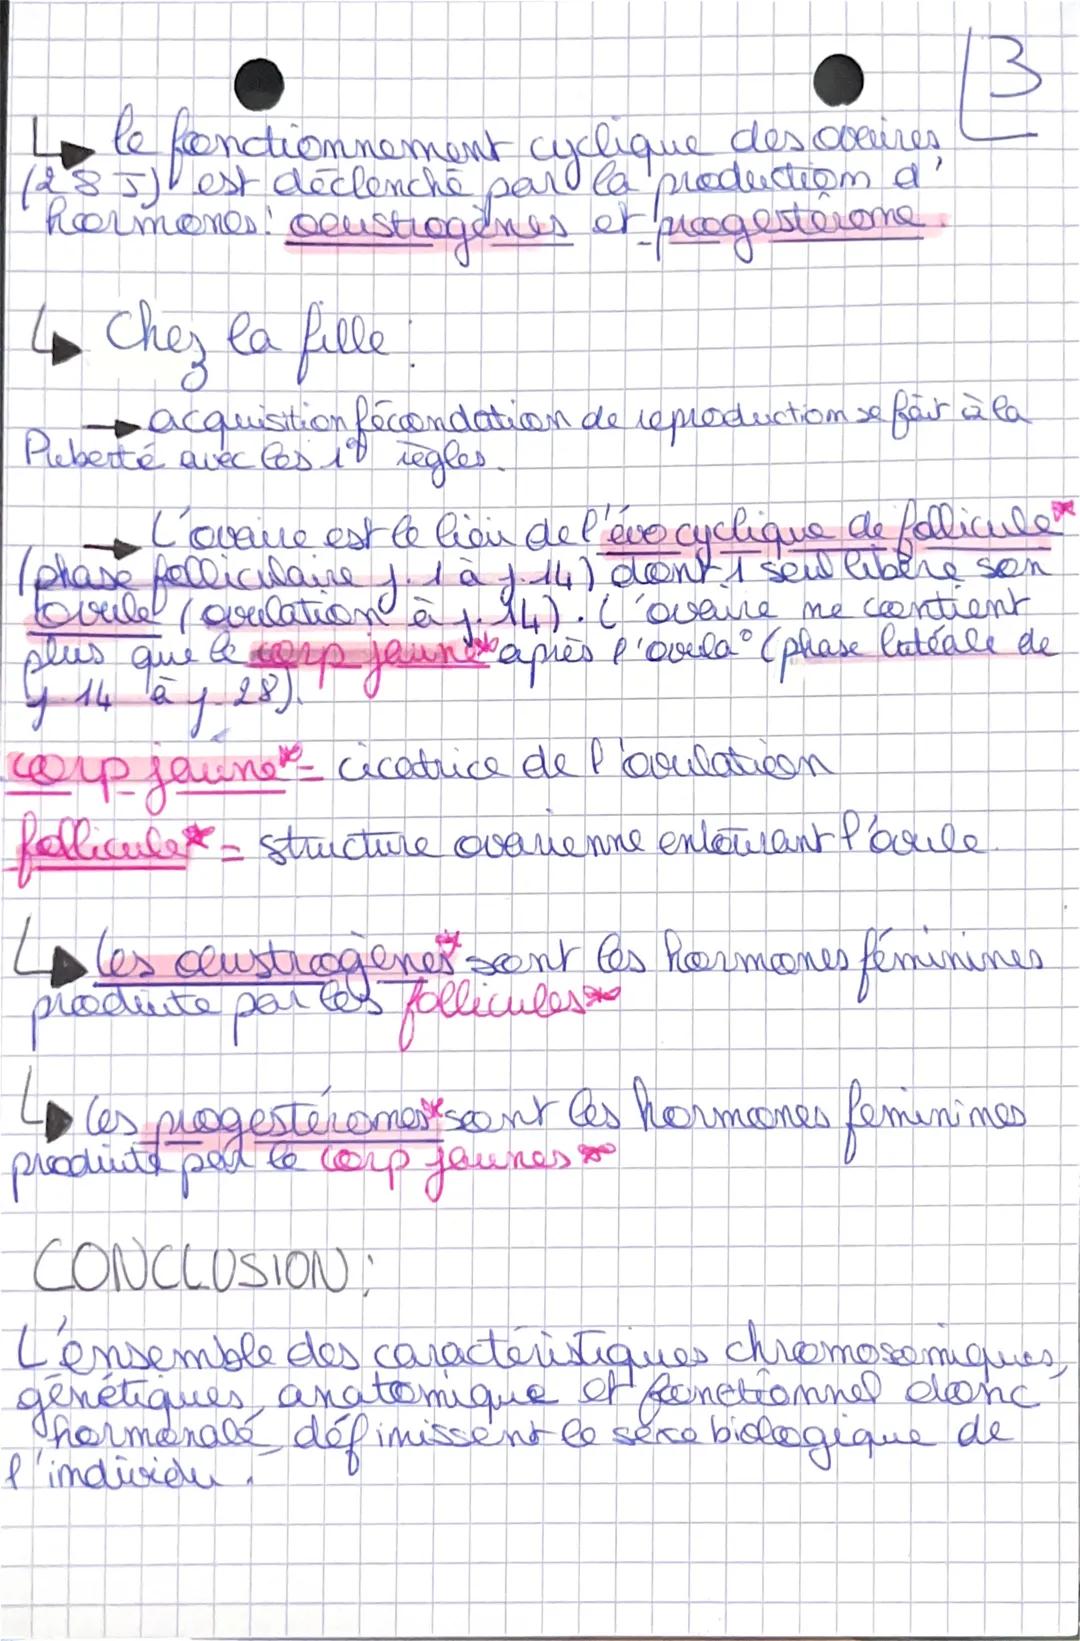 3
le fonctionnement cyclique des ovaires
(28 J) est déclenché par la production d'
hormones: oeustrogènes et progestérone.
Chez la fille :
acquisition fécondation de reproduction se fait à la
Puberté avec les 1e règles.
L'ovaire est le lieu de l'évo cyclique de follicule*
(phase folliculaire j.1 à j.14) dont 1 seul libère son
ovule (ovulation à j.14). L'ovaire ne contient
plus que le corp jaune* après l'ovula° (phase lutéale de
j.14 à j.28).
corp jaune* = cicatrice de l'ovulation
follicule* = structure ovarienne entourant l'ovule.
les oeustrogènes* sont les hormones féminines
produite par les follicules*
les progestérones* sont les hormones feminines
produite par le corp jaunes*
CONCLUSION :
L'ensemble des caractéristiques chromosomiques,
génétiques, anatomique et fonctionnel donc
hormonale, définissent le sexe biologique de
l'individu.